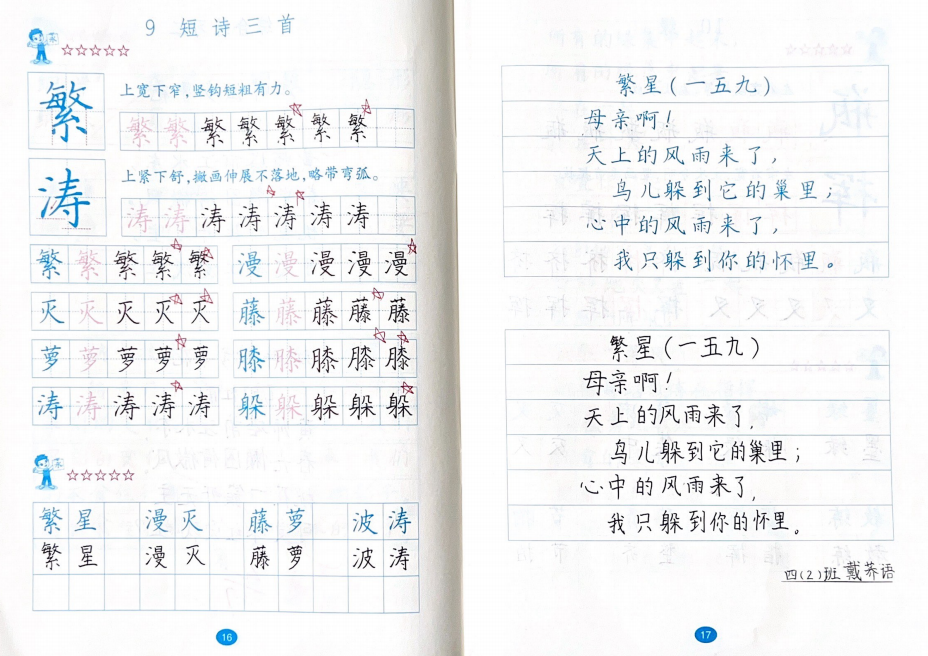 9 短诗三首
繁 上宽下窄，竖钩短粗有力。
繁繁繁繁繁繁繁
涛 上紧下舒，撇画伸展不落地，略带弯弧。
涛涛涛涛涛涛涛
繁繁繁繁繁 漫漫漫漫漫
灭灭灭灭灭 藤藤藤藤藤
萝萝萝萝萝 膝膝膝膝膝
涛涛涛涛涛 躲躲躲躲躲
繁星 漫灭 藤萝 波涛
繁星 漫灭 藤萝 波涛
16
繁星（一五九）
母亲啊！
天上的风雨来了，
鸟儿躲到它的巢里；
心中的风雨来了，
我只躲到你的怀里。
繁星（一五九）
母亲啊！
天上的风雨来了，
鸟儿躲到它的巢里；
心中的风雨来了，
我只躲到你的怀里。
四（2）班 戴荞语
17